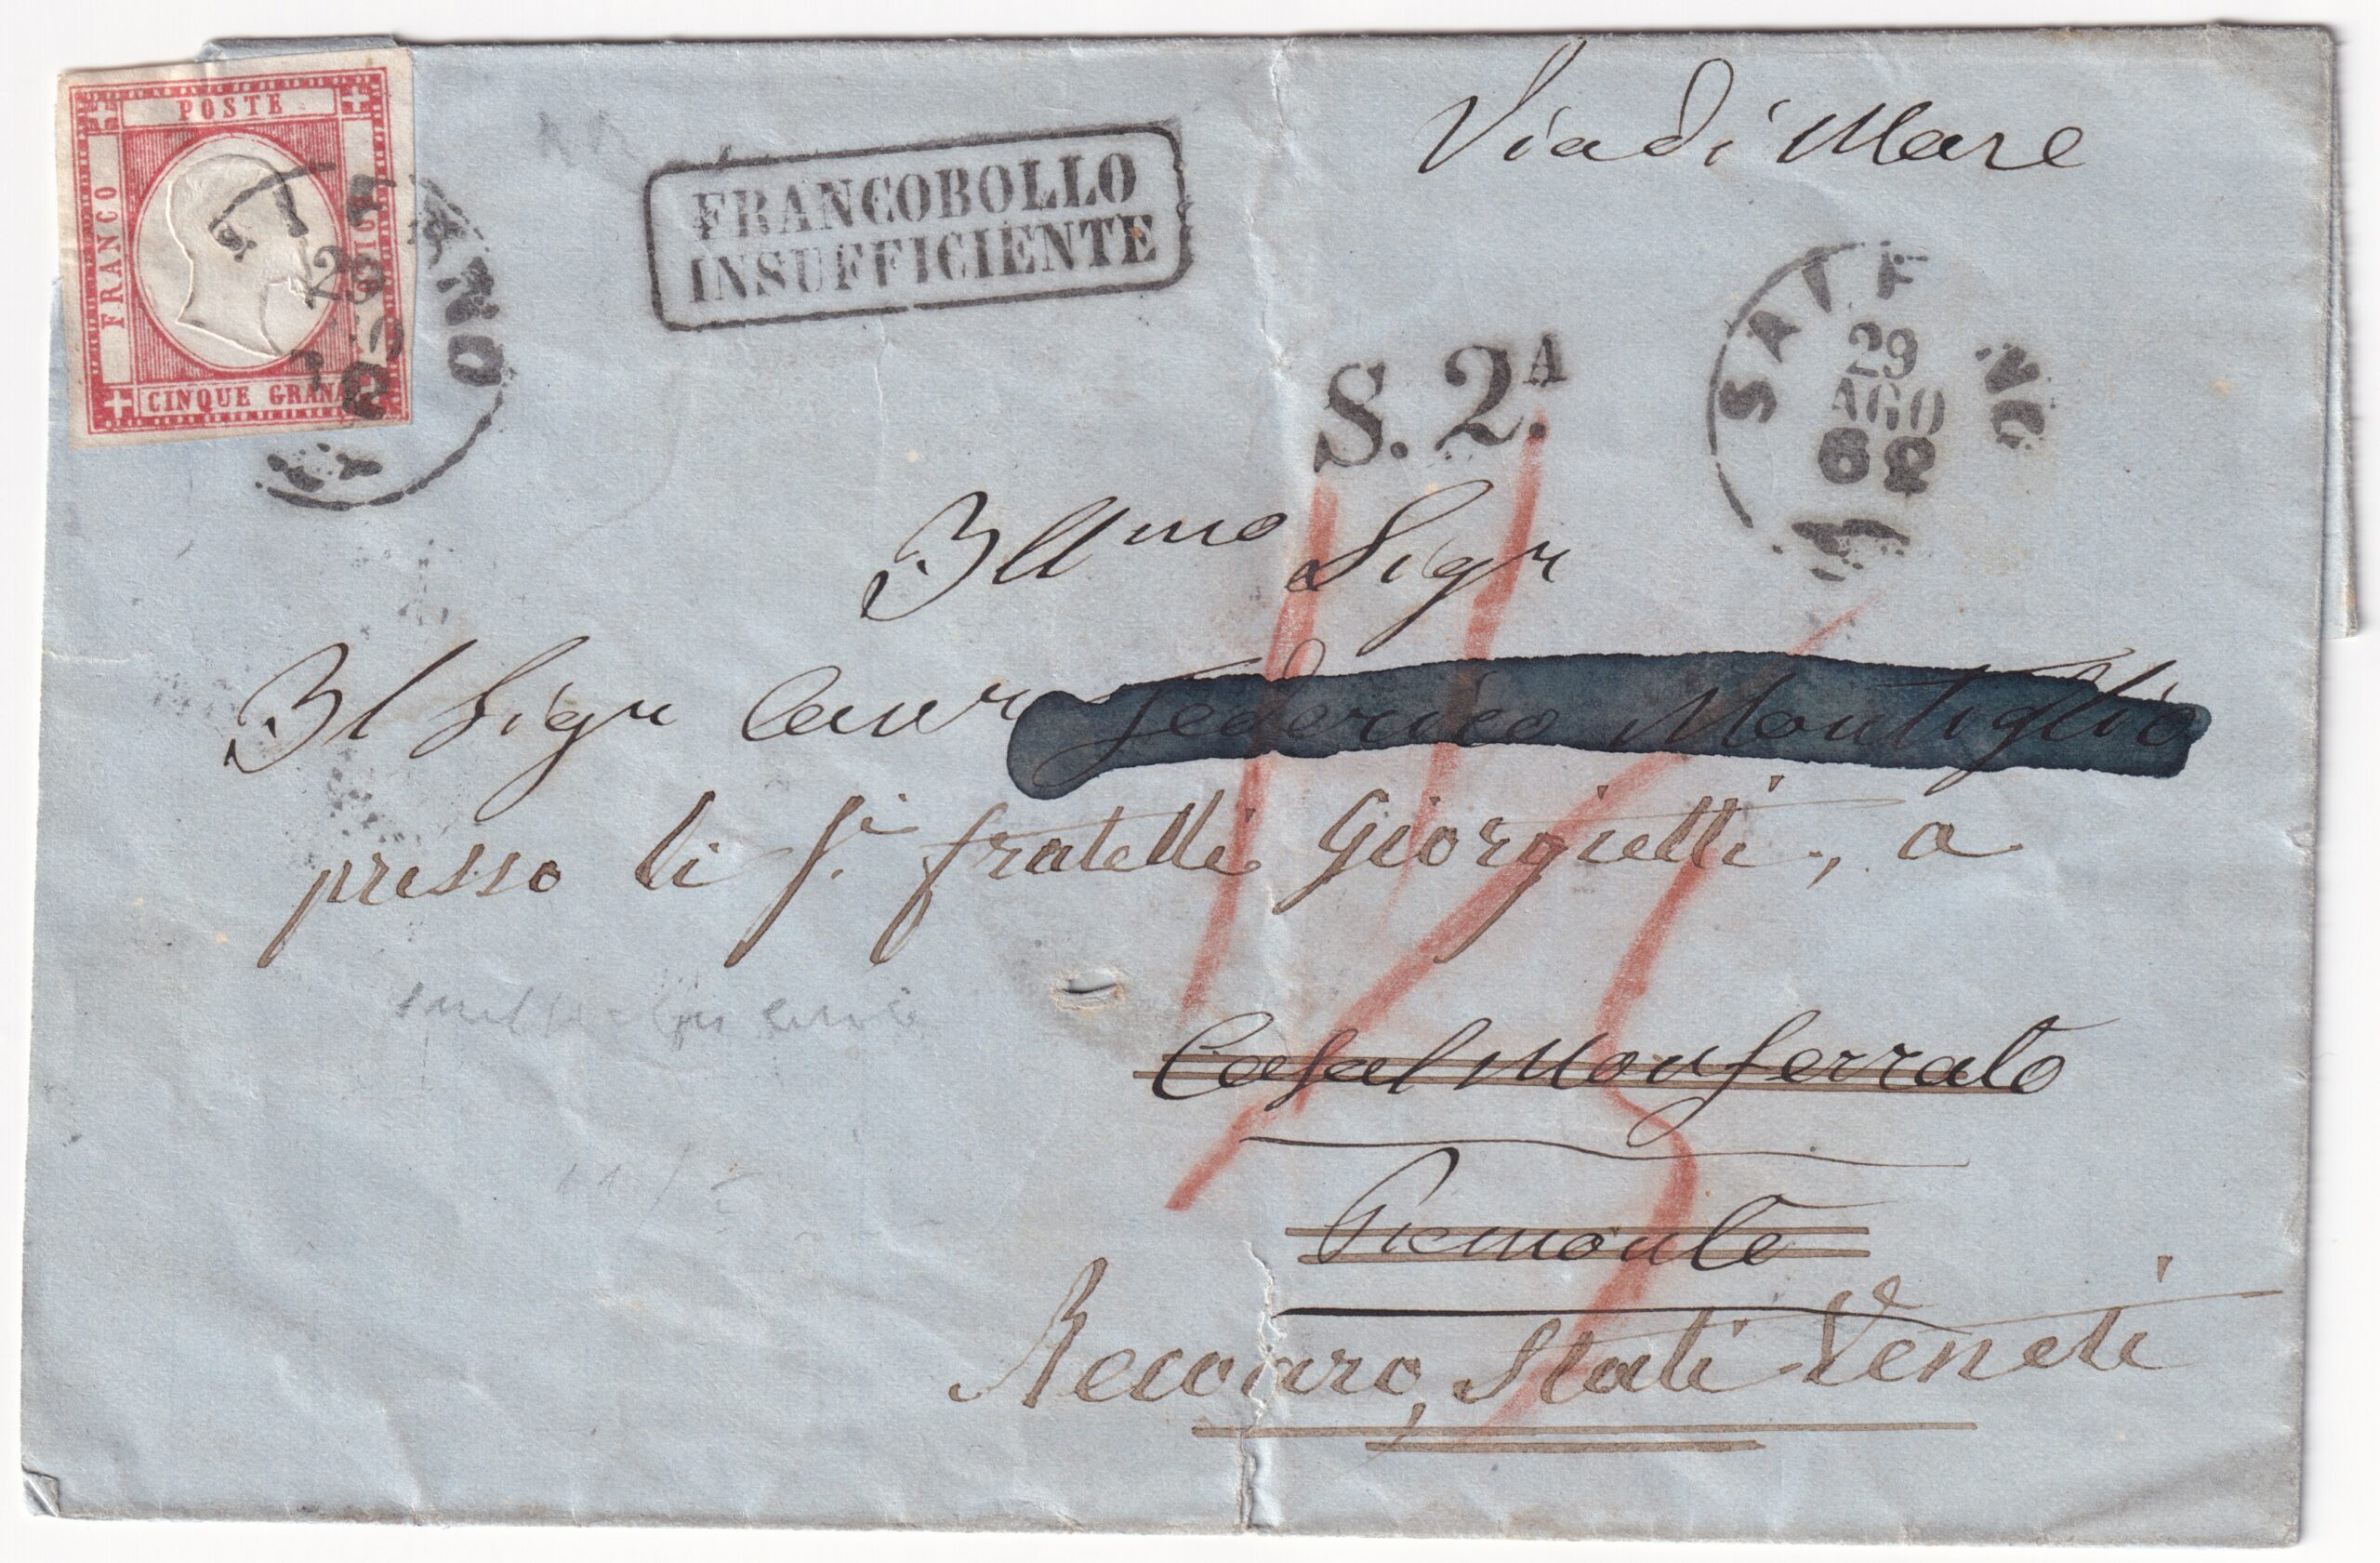 POSTE
FRANCO
CINQUE GRANA
ANO
FRANCOBOLLO
INSUFFICIENTE
Via di Mare
S. 2.A
29
AGO
62
Illmo Sigr
Il Sigr Cavr Federico Montiglio
presso li Si. fratelli Giorgietti, a
Casal Monferrato
Piemonte
Recoaro, Stati Veneti